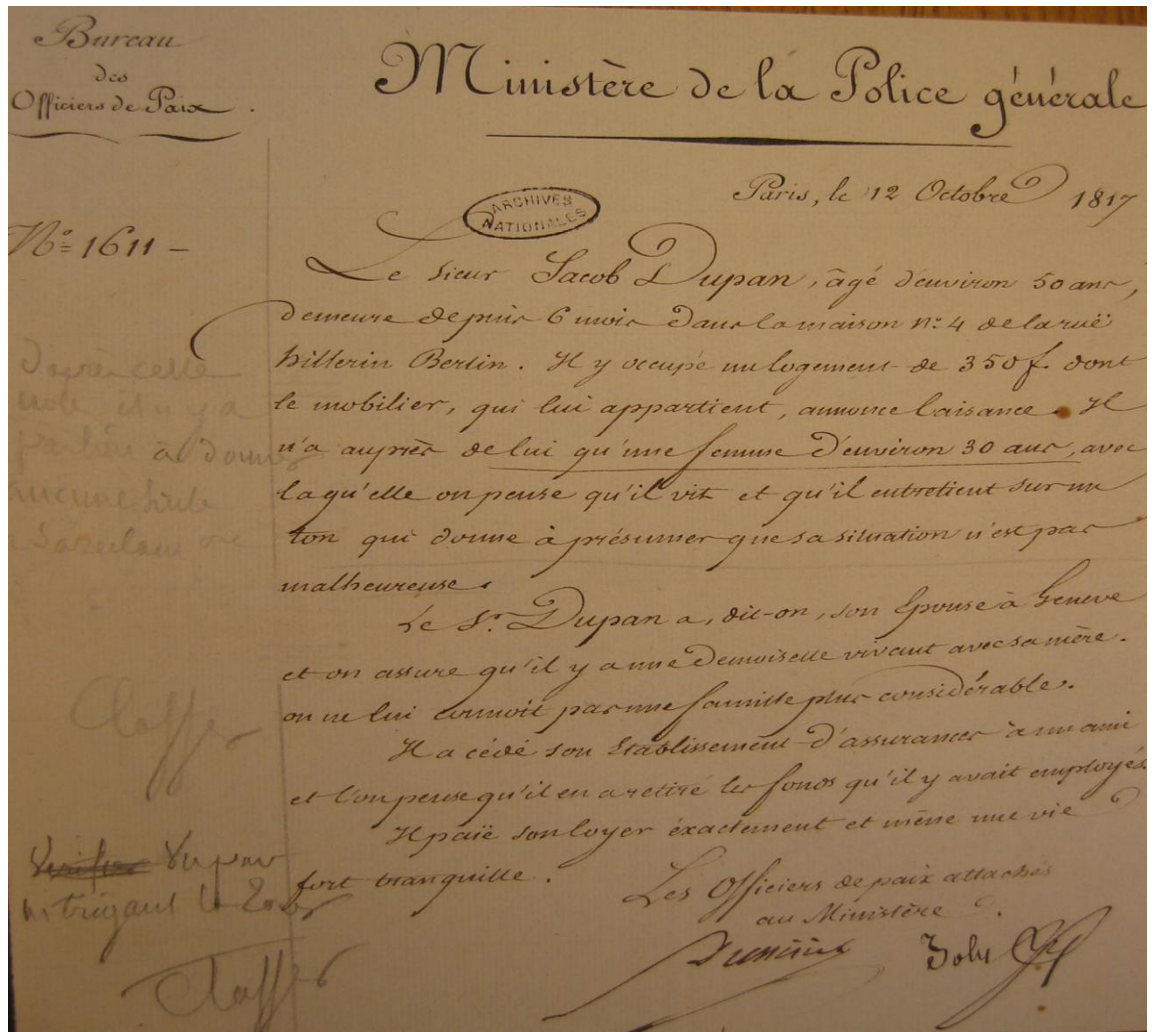 Bureau
des
Officiers de Paix.
Ministère de la Police générale
Paris, le 12 Octobre 1817
ARCHIVES
NATIONALES
N° 1611 -
Le Sieur Jacob Dupan, âgé d'environ 50 ans,
demeure depuis 6 mois dans la maison n° 4 de la ruë
hillerin Bertin. Il y occupe un logement de 350 f. dont
le mobilier, qui lui appartient, annonce l'aisance. Il
n'a auprès de lui qu'une femme d'environ 30 ans, avec
laqu'elle on pense qu'il vit et qu'il entretient sur un
ton qui donne à présumer que sa situation n'est pas
malheureuse.
Le Sr. Dupan a, dit-on, son Epouse à Geneve
et on assure qu'il y a une Demoiselle vivant avec sa mère.
on ne lui connoit pas une famille plus considérable.
Il a cédé son Etablissement d'assurances à un ami
et l'on pense qu'il en a retiré les fonds qu'il y avait employés
Il paië son loyer éxactement et mène une vie
fort tranquille.
Les Officiers de paix attachés
au Ministère.
d'après cette
note il n'y a
à donner
aucune suite
Classer
Dupan
intrigant
Classer
Joly